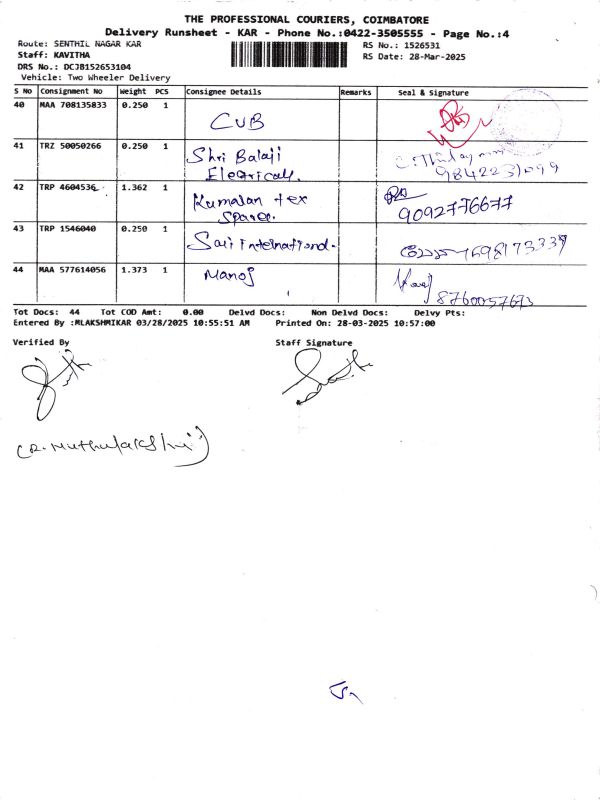 THE PROFESSIONAL COURIERS, COIMBATORE
Delivery Runsheet - KAR - Phone No.:0422-3505555 - Page No.:4
Route: SENTHIL NAGAR KAR
RS No.: 1526531
Staff: KAVITHA
RS Date: 28-Mar-2025
DRS No.: DCJB152653104
Vehicle: Two Wheeler Delivery
S NO Consignment No Weight PCS Consignee Details Remarks Seal & Signature
40 MAA 708135833 0.250 1 CUB
41 TRZ 50050266 0.250 1 Shri Balaji
Eletricals.
42 TRP 4604536 1.362 1 Kumalan tex
Spares.
9092776677
43 TRP 1546040 0.250 1 Sai International.
44 MAA 577614056 1.373 1 Manoj
8760057673
Tot Docs: 44 Tot COD Amt: 0.00 Delvd Docs: Non Delvd Docs: Delvy Pts:
Entered By :MLAKSHMIKAR 03/28/2025 10:55:51 AM Printed On: 28-03-2025 10:57:00
Verified By
Staff Signature
(R. Muthulakshmi)